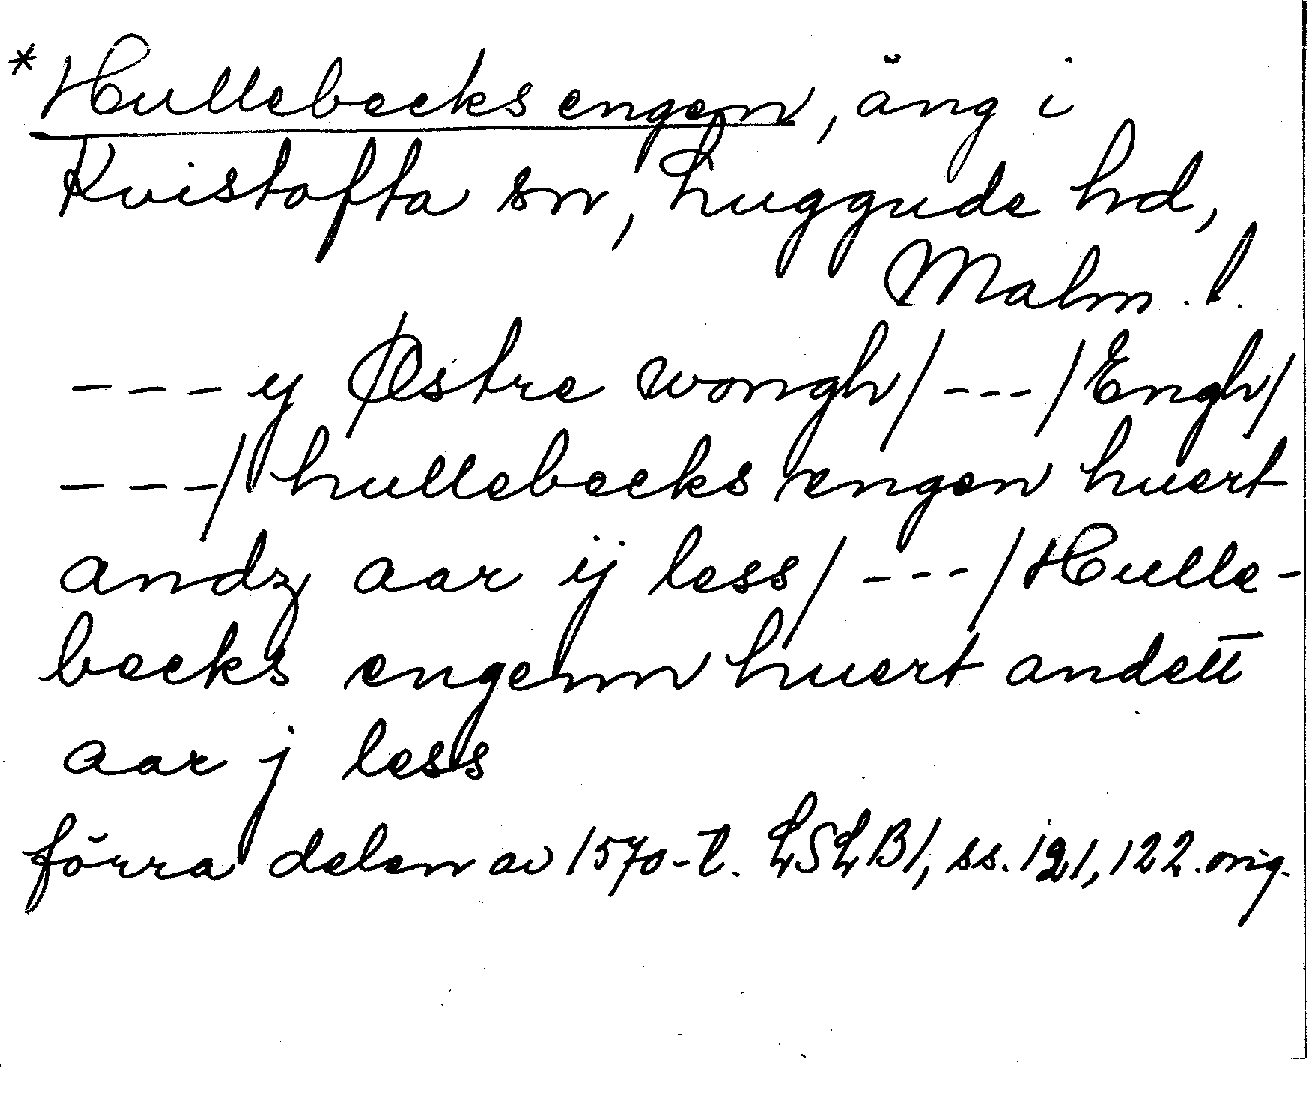 *Hullebecks engen, äng i
Kvistofta sn, Luggude hd,
Malm. l.
--- y Østre wongh/---/Engh/
---/hullebecks engen huert
andz aar ij less/---/Hulle-
becks engenn huert andett
aar j less
förra delen av 1570-t. LSLB1, ss. 121, 122. orig.